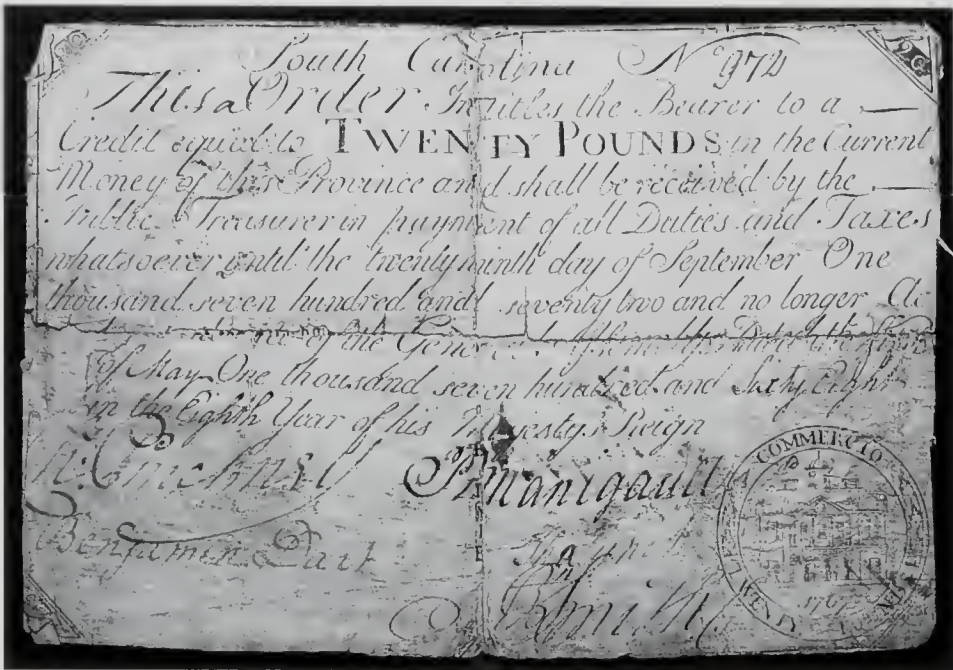 20
20
South Carolina No 972
This Order Intitles the Bearer to a
Credit equal to TWENTY POUNDS in the Current
Money of this Province and shall be received by the
Public Treasurer in payment of all Duties and Taxes
whatsoever until the twenty ninth day of September One
thousand seven hundred and seventy two and no longer
of the
of May One thousand seven hundred and Sixty Eight
in the Eighth Year of his Majestys Reign
P Manigault
Benjamin Dart
Smith
COMMERCIO
1767